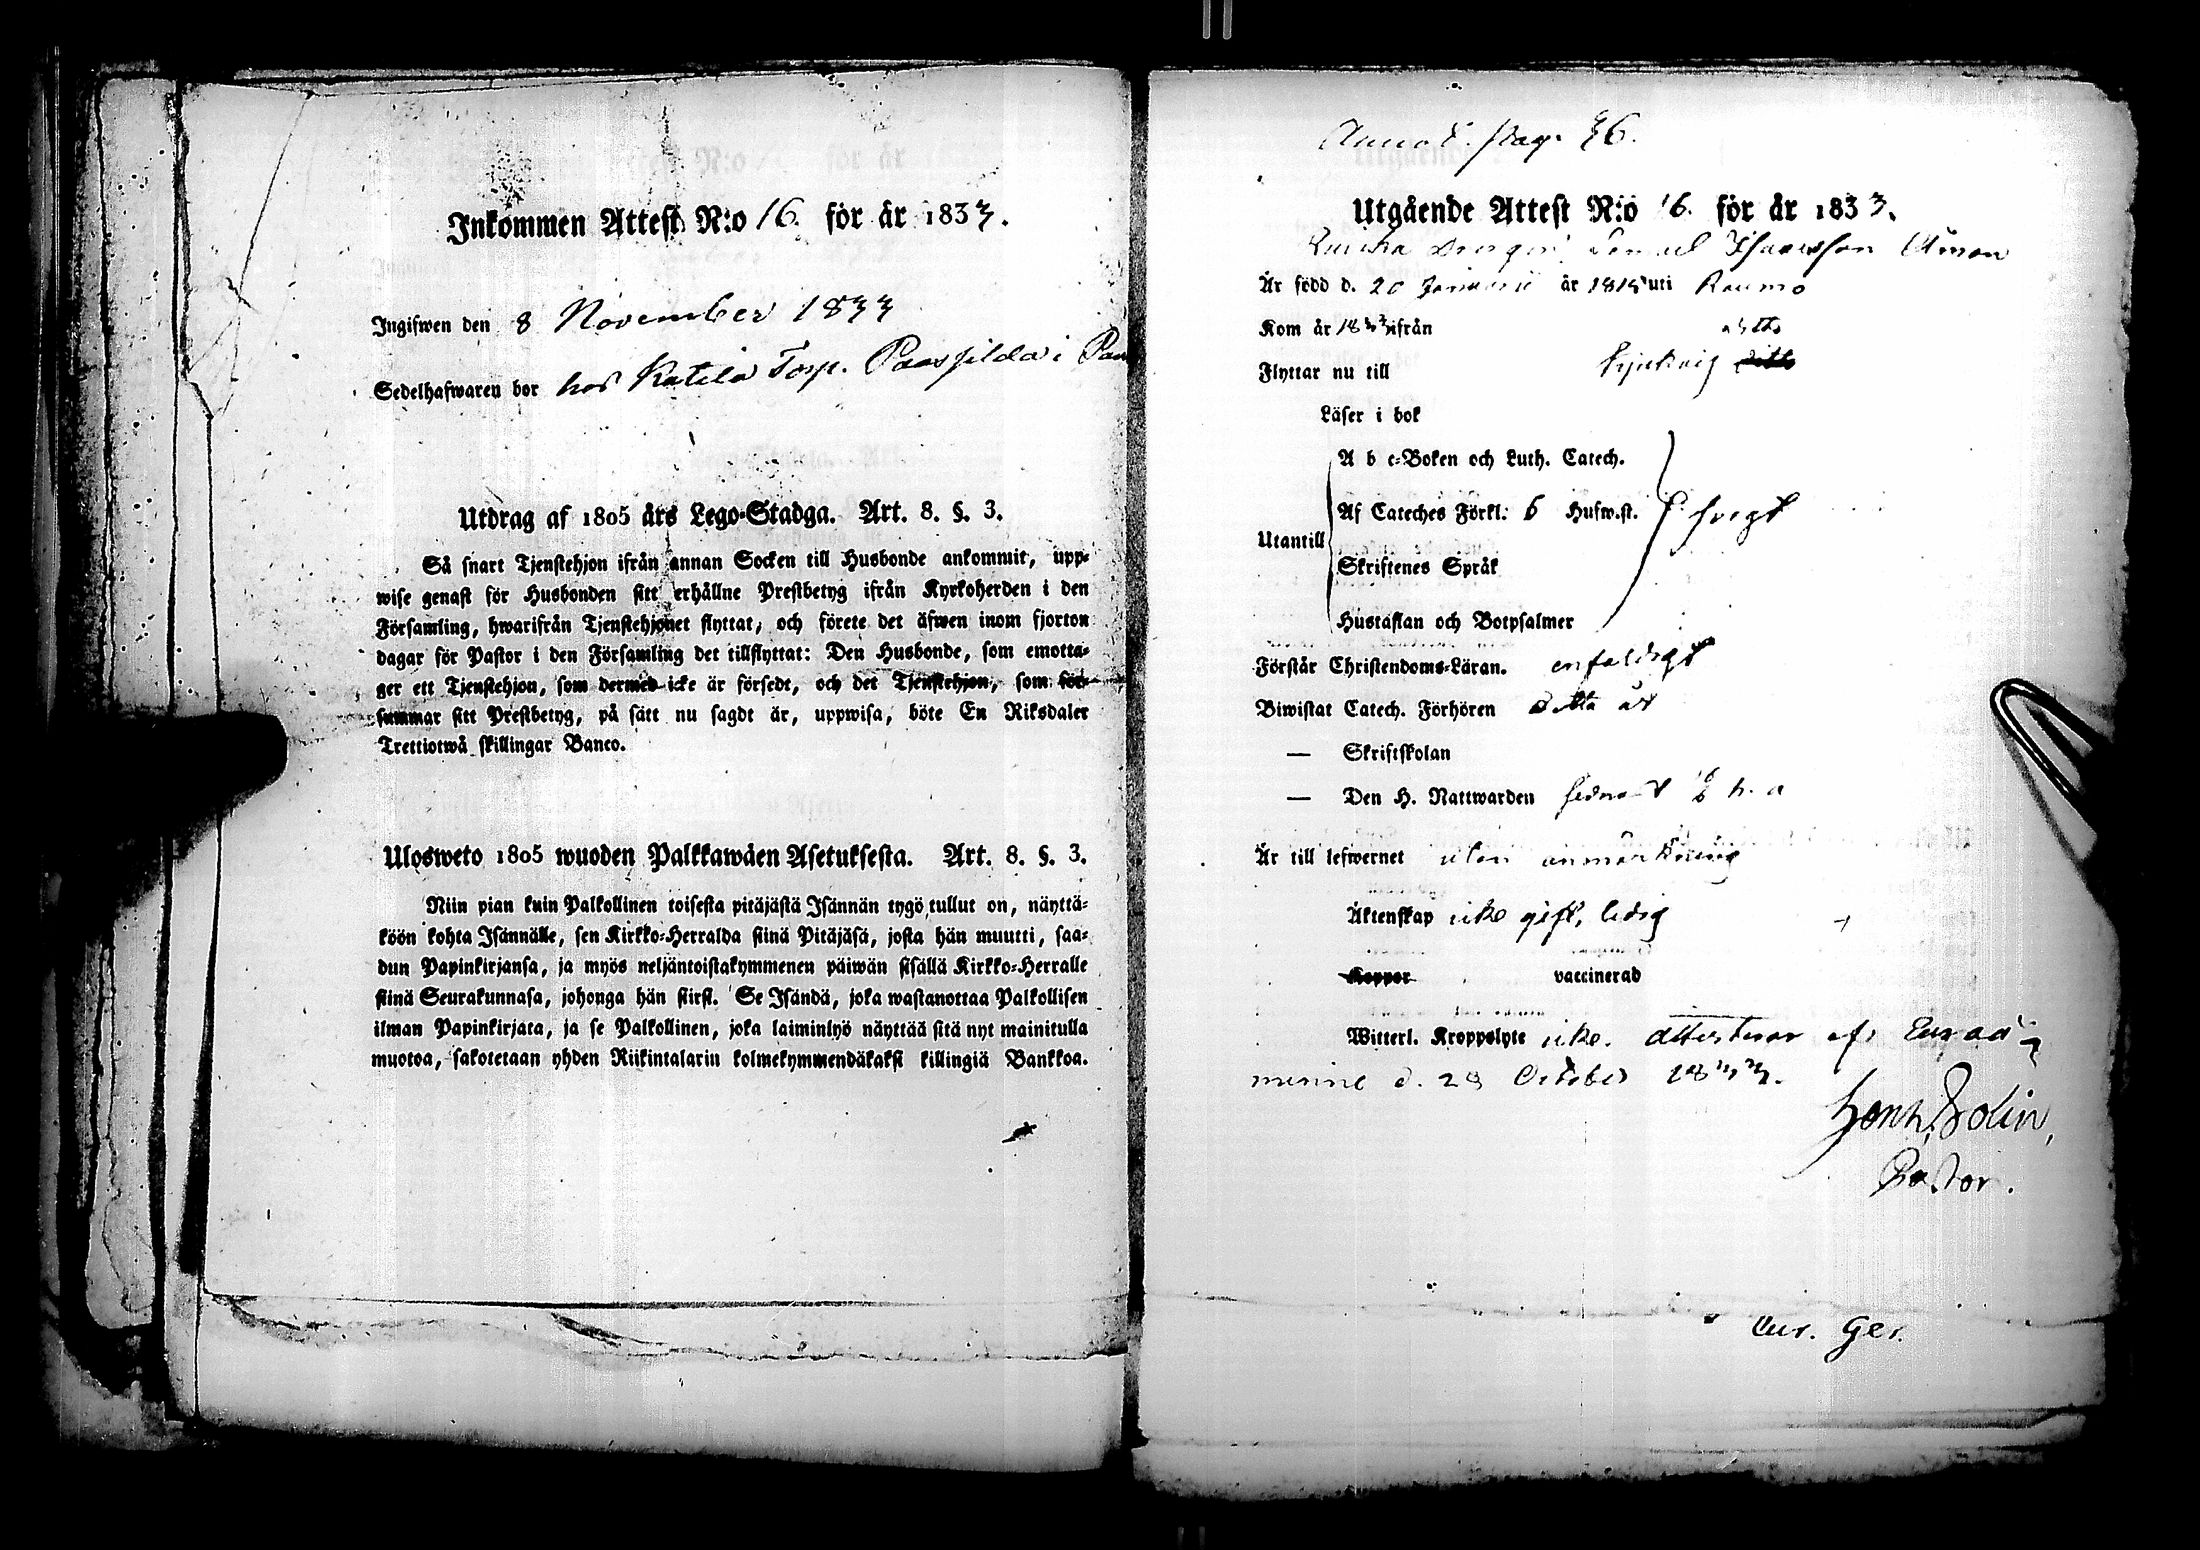 Inkommen Attest N:o 16. för år 1833.
Ingifwen den 8 November 1833
Sedelhafwaren bor hos Katila Torp. i
Utdrag af 1805 års Lego-Stadga. Art. 8. §. 3.
Så snart Tjenstehjon ifrån annan Socken till Husbonde ankommit, upp-
wise genast för Husbonden sitt erhållne Prestbetyg ifrån Kyrkoherden i den
Församling, hwarifrån Tjenstehjonet flyttat, och förete det äfwen inom fjorton
dagar för Pastor i den Församling det tillflyttat: Den Husbonde, som emotta-
ger ett Tjenstehjon, som dermed icke är försedt, och det Tjenstehjon, som för-
summar sitt Prestbetyg, på sätt nu sagdt är, uppwisa, böte En Riksdaler
Trettiotwå skillingar Banco.
Ulosweto 1805 wuoden Palkkawäen Asetuksesta. Art. 8. §. 3.
Niin pian kuin Palkollinen toisesta pitäjästä Isännän tygö tullut on, näyttä-
köön kohta Isännälle, sen Kirkko-Herralda siinä Pitäjäsä, josta hän muutti, saa-
dun Papinkirjansa, ja myös neljäntoistakymmenen päiwän sisällä Kirkko-Herralle
siinä Seurakunnasa, johonga hän siirst. Se Isändä, joka wastanottaa Palkollisen
ilman Papinkirjata, ja se Palkollinen, joka laiminlyö näyttää sitä nyt mainitulla
muotoa, sakotetaan yhden Riikintalarin kolmekymmendäkaksi killingiä Bankkoa.
Annot. pag. 76.
Utgående Attest N:o 16. för år 1833.
Isaksson
Är född d. 20 Januarii år 1815 uti Raumo
Kom år ifrån ditto
Flyttar nu till
Läser i bok
A b c-Boken och Luth. Catech.
Af Cateches Förkl: 6 Hufw.st. svagt
Utantill
Skriftenes Språk
Hustaflan och Botpsalmer
Förstår Christendoms-Läran. enfaldigt
Biwistat Catech. Förhören detta år
— Skriftskolan
— Den H. Nattwarden sednast h. a
Är till lefwernet utan anmärkning
Äktenskap icke gift, ledig
Koppor vaccinerad
Witterl. Kroppslyte icke. attesterar af
d. 28 October 1833.
Pastor.
Cur. Ger.